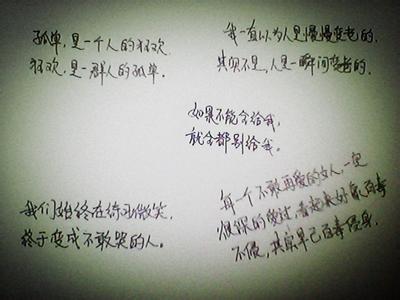 孤单,是一个人的狂欢
狂欢,是一群人的孤单.
我一直以为人是慢慢变老的,
其实不是,人是一瞬间变老的.
如果不能全给我,
就全都别给我。
我们始终在练习微笑,
终于变成不敢哭的人。
每一个不敢再爱的女人,一定
狠狠的爱过,看起来好象百毒
不侵,其实早已百毒侵身.